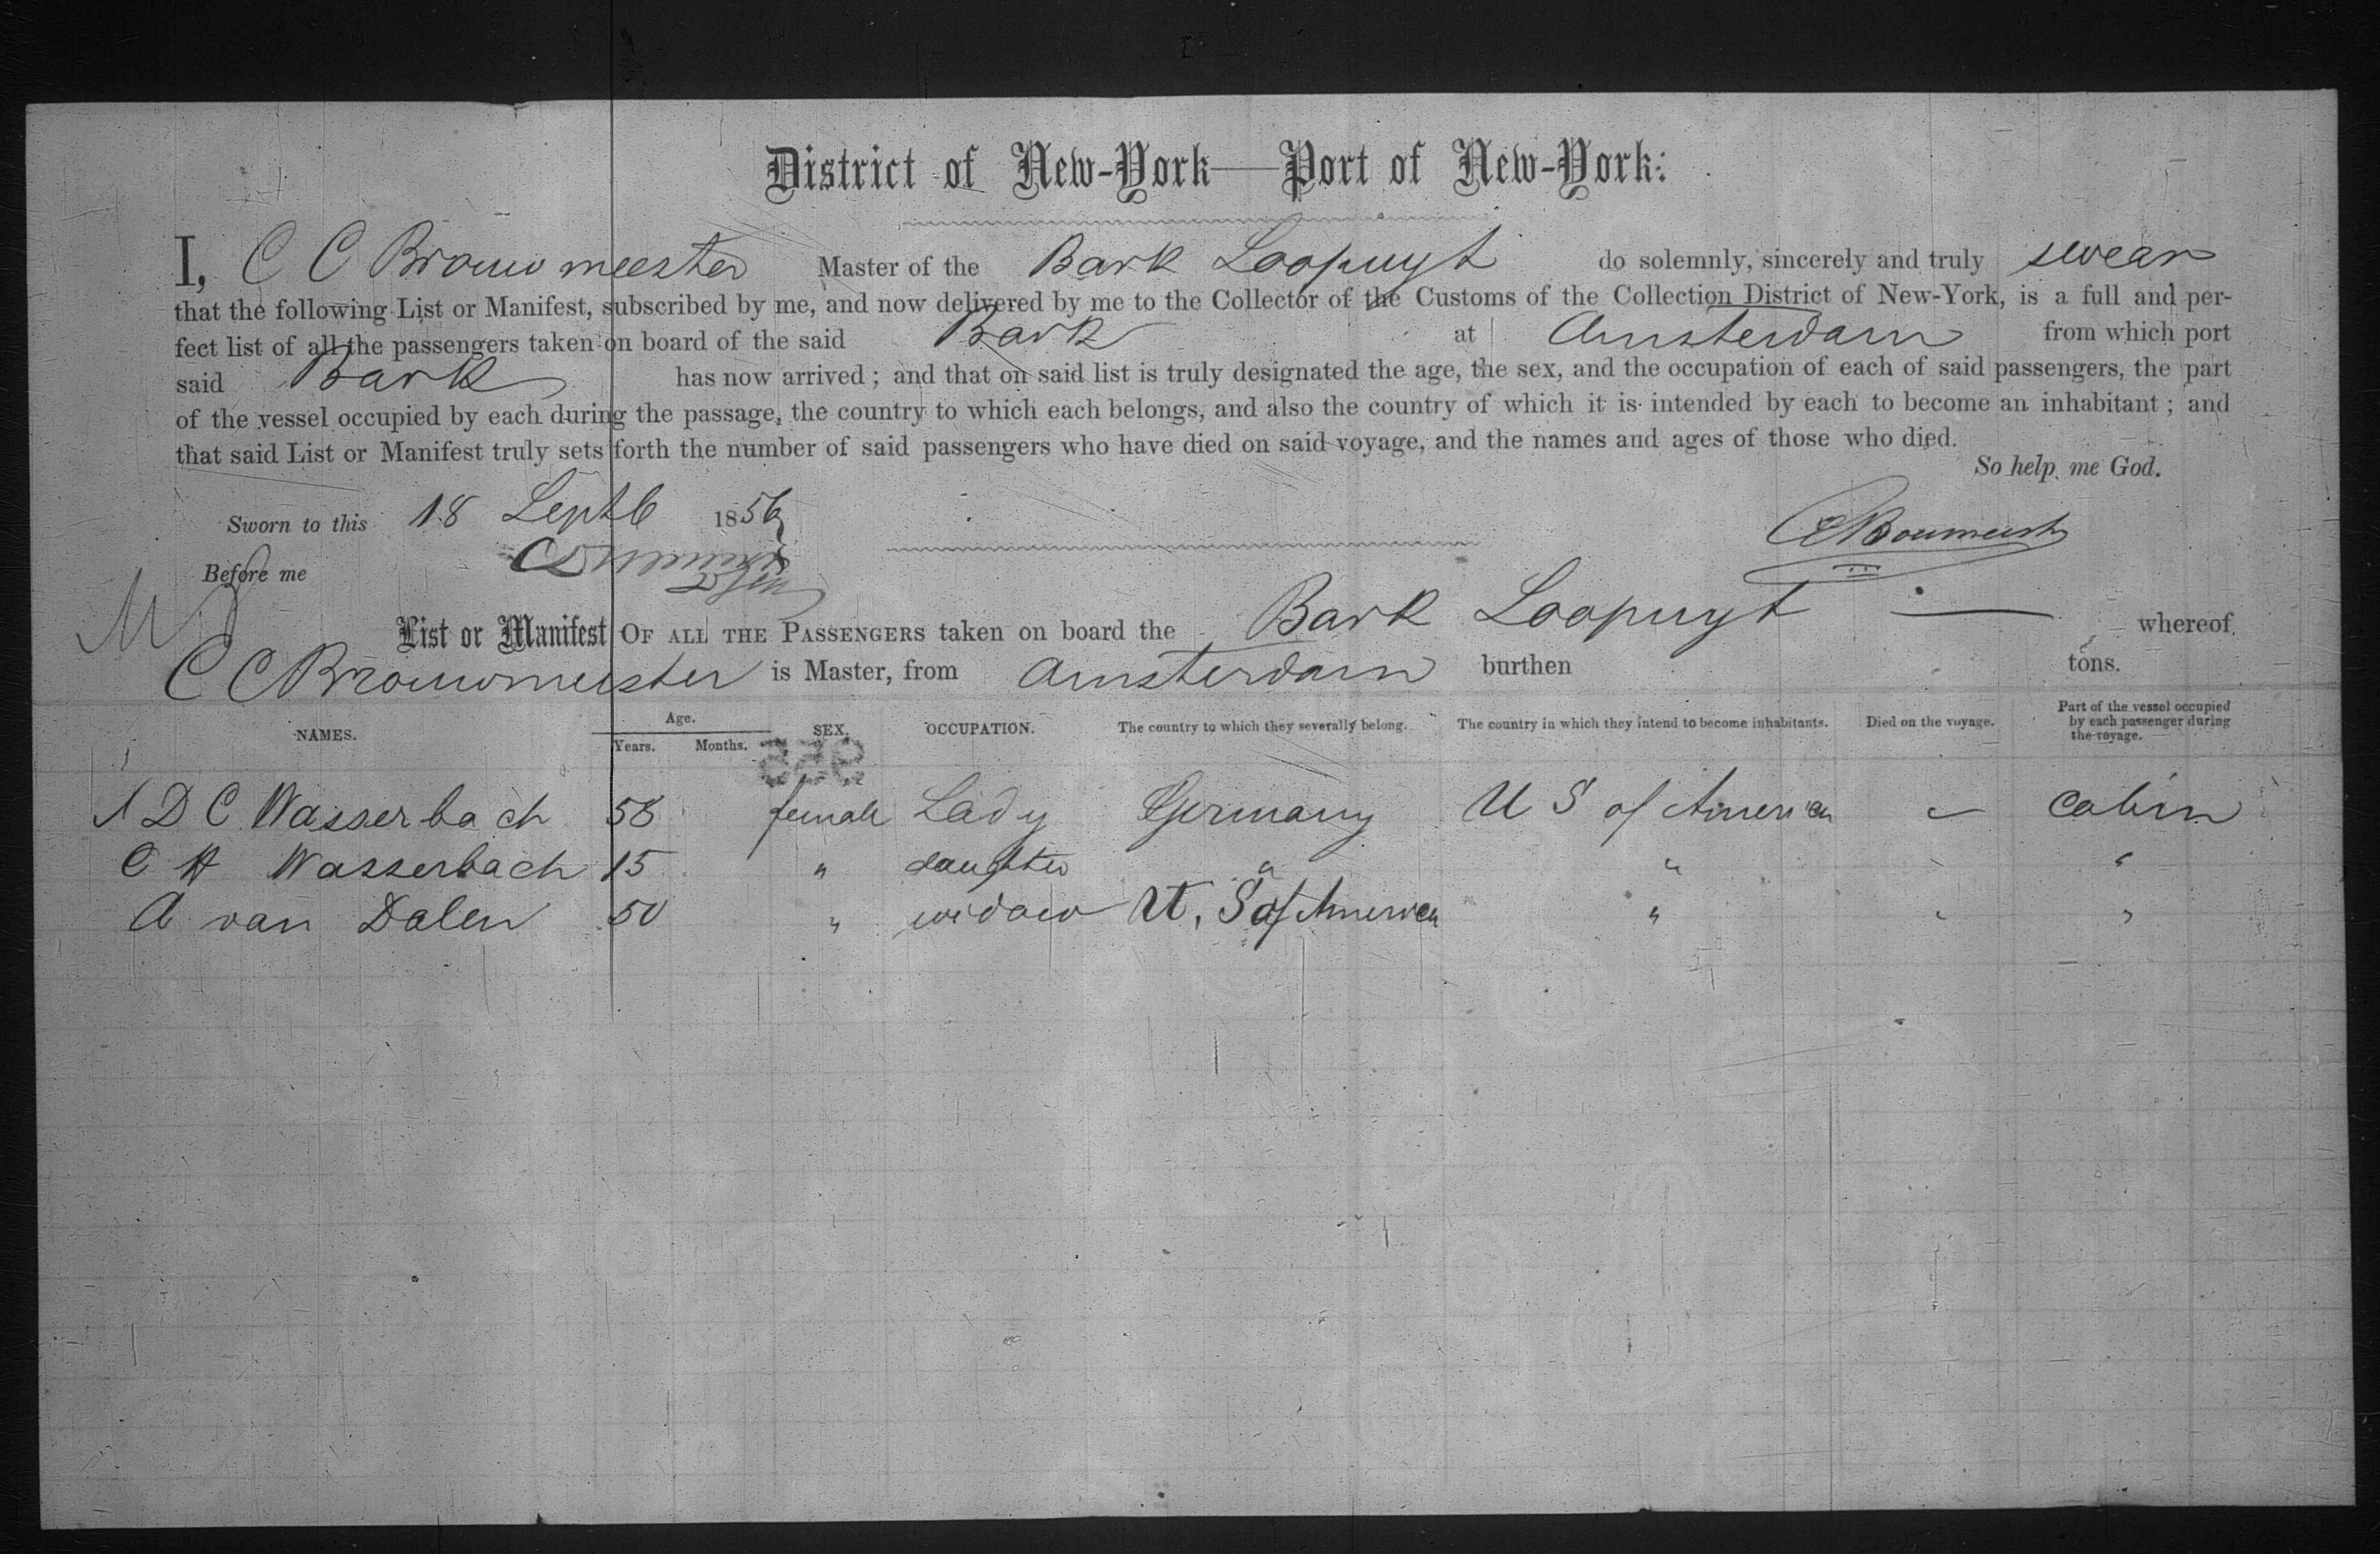 District of New-York—Port of New-York:
I, C C Brouwmeester Master of the Bark Loopuyt do solemnly, sincerely and truly swear
that the following List or Manifest, subscribed by me, and now delivered by me to the Collector of the Customs of the Collection District of New-York, is a full and per-
fect list of all the passengers taken on board of the said Bark at Amsterdam from which port
said Bark has now arrived; and that on said list is truly designated the age, the sex, and the occupation of each of said passengers, the part
of the vessel occupied by each during the passage, the country to which each belongs, and also the country of which it is intended by each to become an inhabitant; and
that said List or Manifest truly sets forth the number of said passengers who have died on said voyage, and the names and ages of those who died.
So help me God.
Sworn to this 18 Septb 1856
Before me
List or Manifest OF ALL THE PASSENGERS taken on board the Bark Loopuyt — whereof
C C Brouwmeester is Master, from Amsterdam burthen tons.
NAMES. Age. Years. Months. SEX. OCCUPATION. The country to which they severally belong. The country in which they intend to become inhabitants. Died on the voyage. Part of the vessel occupied by each passenger during the voyage.
955
D C Wasserbach 58 female Lady Germany U S of America – Cabin
C H Wasserbach 15 " daughter " " "
A van Dalen 50 " widow U, S of America " "